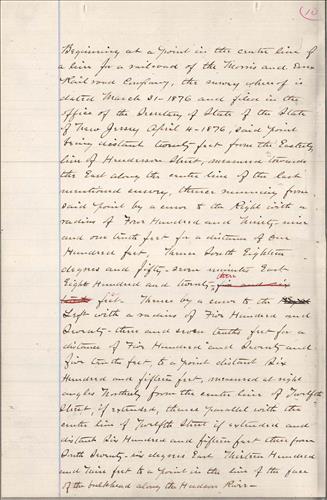 10
Beginning at a point in the center line of
a line for a railroad of the Morris and Essex
Railroad Company, the survey whereof is
dated March 31-1876 and filed in the
office of the Secretary of State of the State
of New Jersey April 4-1876, said point
being distant twenty feet from the Easterly
line of Henderson Street, measured towards
the East along the center line of the last
mentioned survey, thence running from
said point by a curve to the Right with a
radius of Four Hundred and Thirty-nine
and one tenth feet for a distance of One
Hundred feet, Thence South Eighteen
degrees and fifty-seven minutes East
Eight Hundred and twenty-three
feet. Thence by a curve to the
Left with a radius of Five Hundred and
Seventy-three and seven tenths feet for a
distance of Five Hundred and Seventy and
five tenths feet, to a point distant Six
Hundred and fifteen feet, measured at right
angles Northerly from the center line of Twelfth
Street, if extended, thence parallel with the
center line of Twelfth Street if extended and
distant Six Hundred and fifteen feet therefrom
South Seventy-six degrees East Thirteen Hundred
and feet to a point in the line of the face
of the bulkhead along the Hudson River-